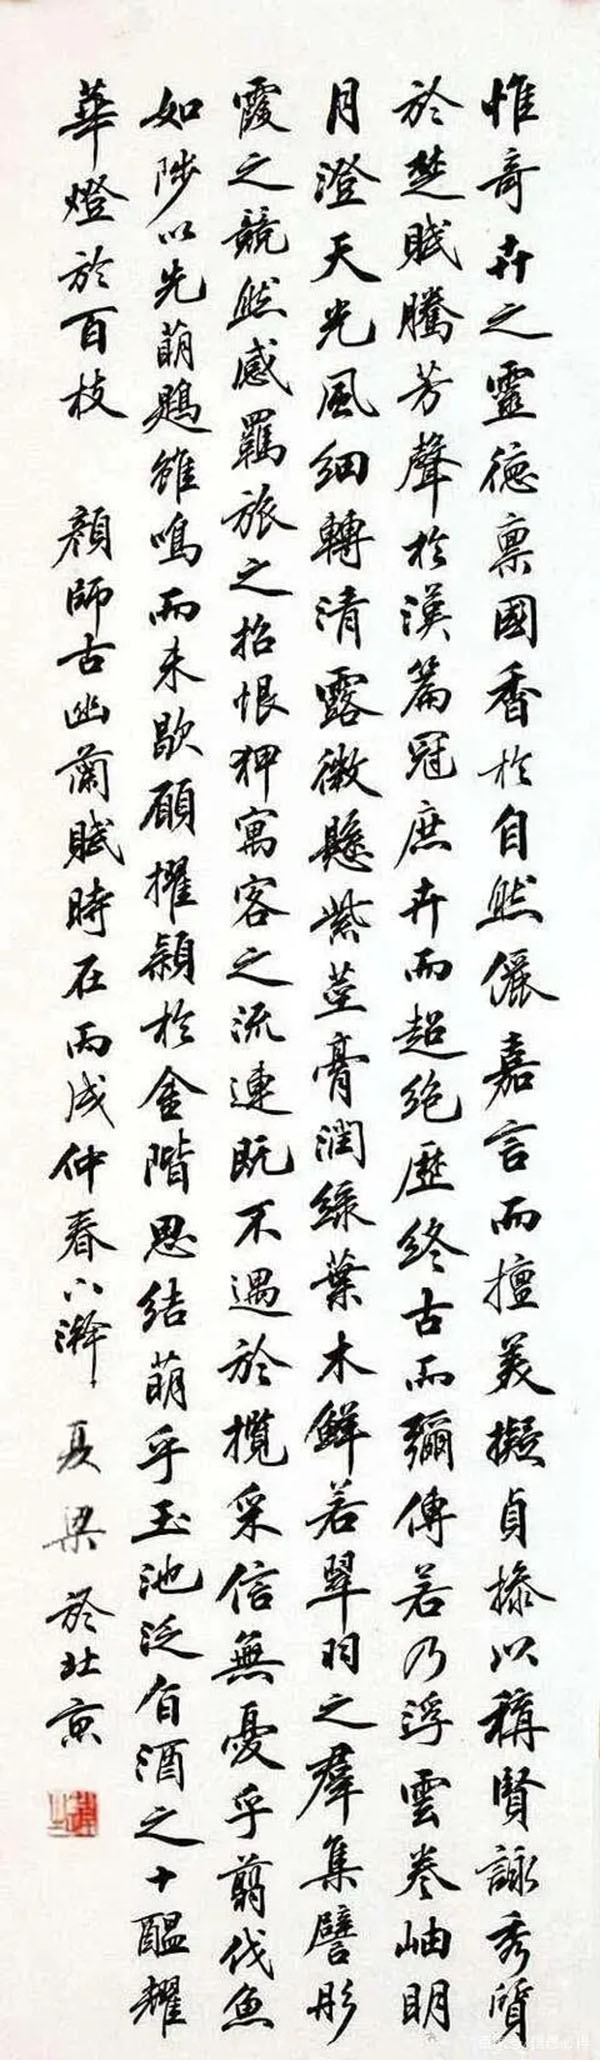 惟奇卉之靈德稟國香於自然儷嘉言而擅美擬貞操以稱賢詠秀質
於楚賦騰芳聲於漢篇冠庶卉而超絶歷終古而彌傳若乃浮雲卷岫明
月澄天光風細轉清露微懸紫莖膏潤緑葉木鮮若翠羽之羣集譬彤
霞之競然感羈旅之招恨狎寓客之流連既不遇於攬采信無憂乎翦伐魚
如陟以先萌鶗雖鳴而未歇願擢穎於金階思結萌乎玉池泛旨酒之十醞耀
華燈於百枝 顔師古幽蘭賦時在丙戌仲春八澣 夏梁 於北京